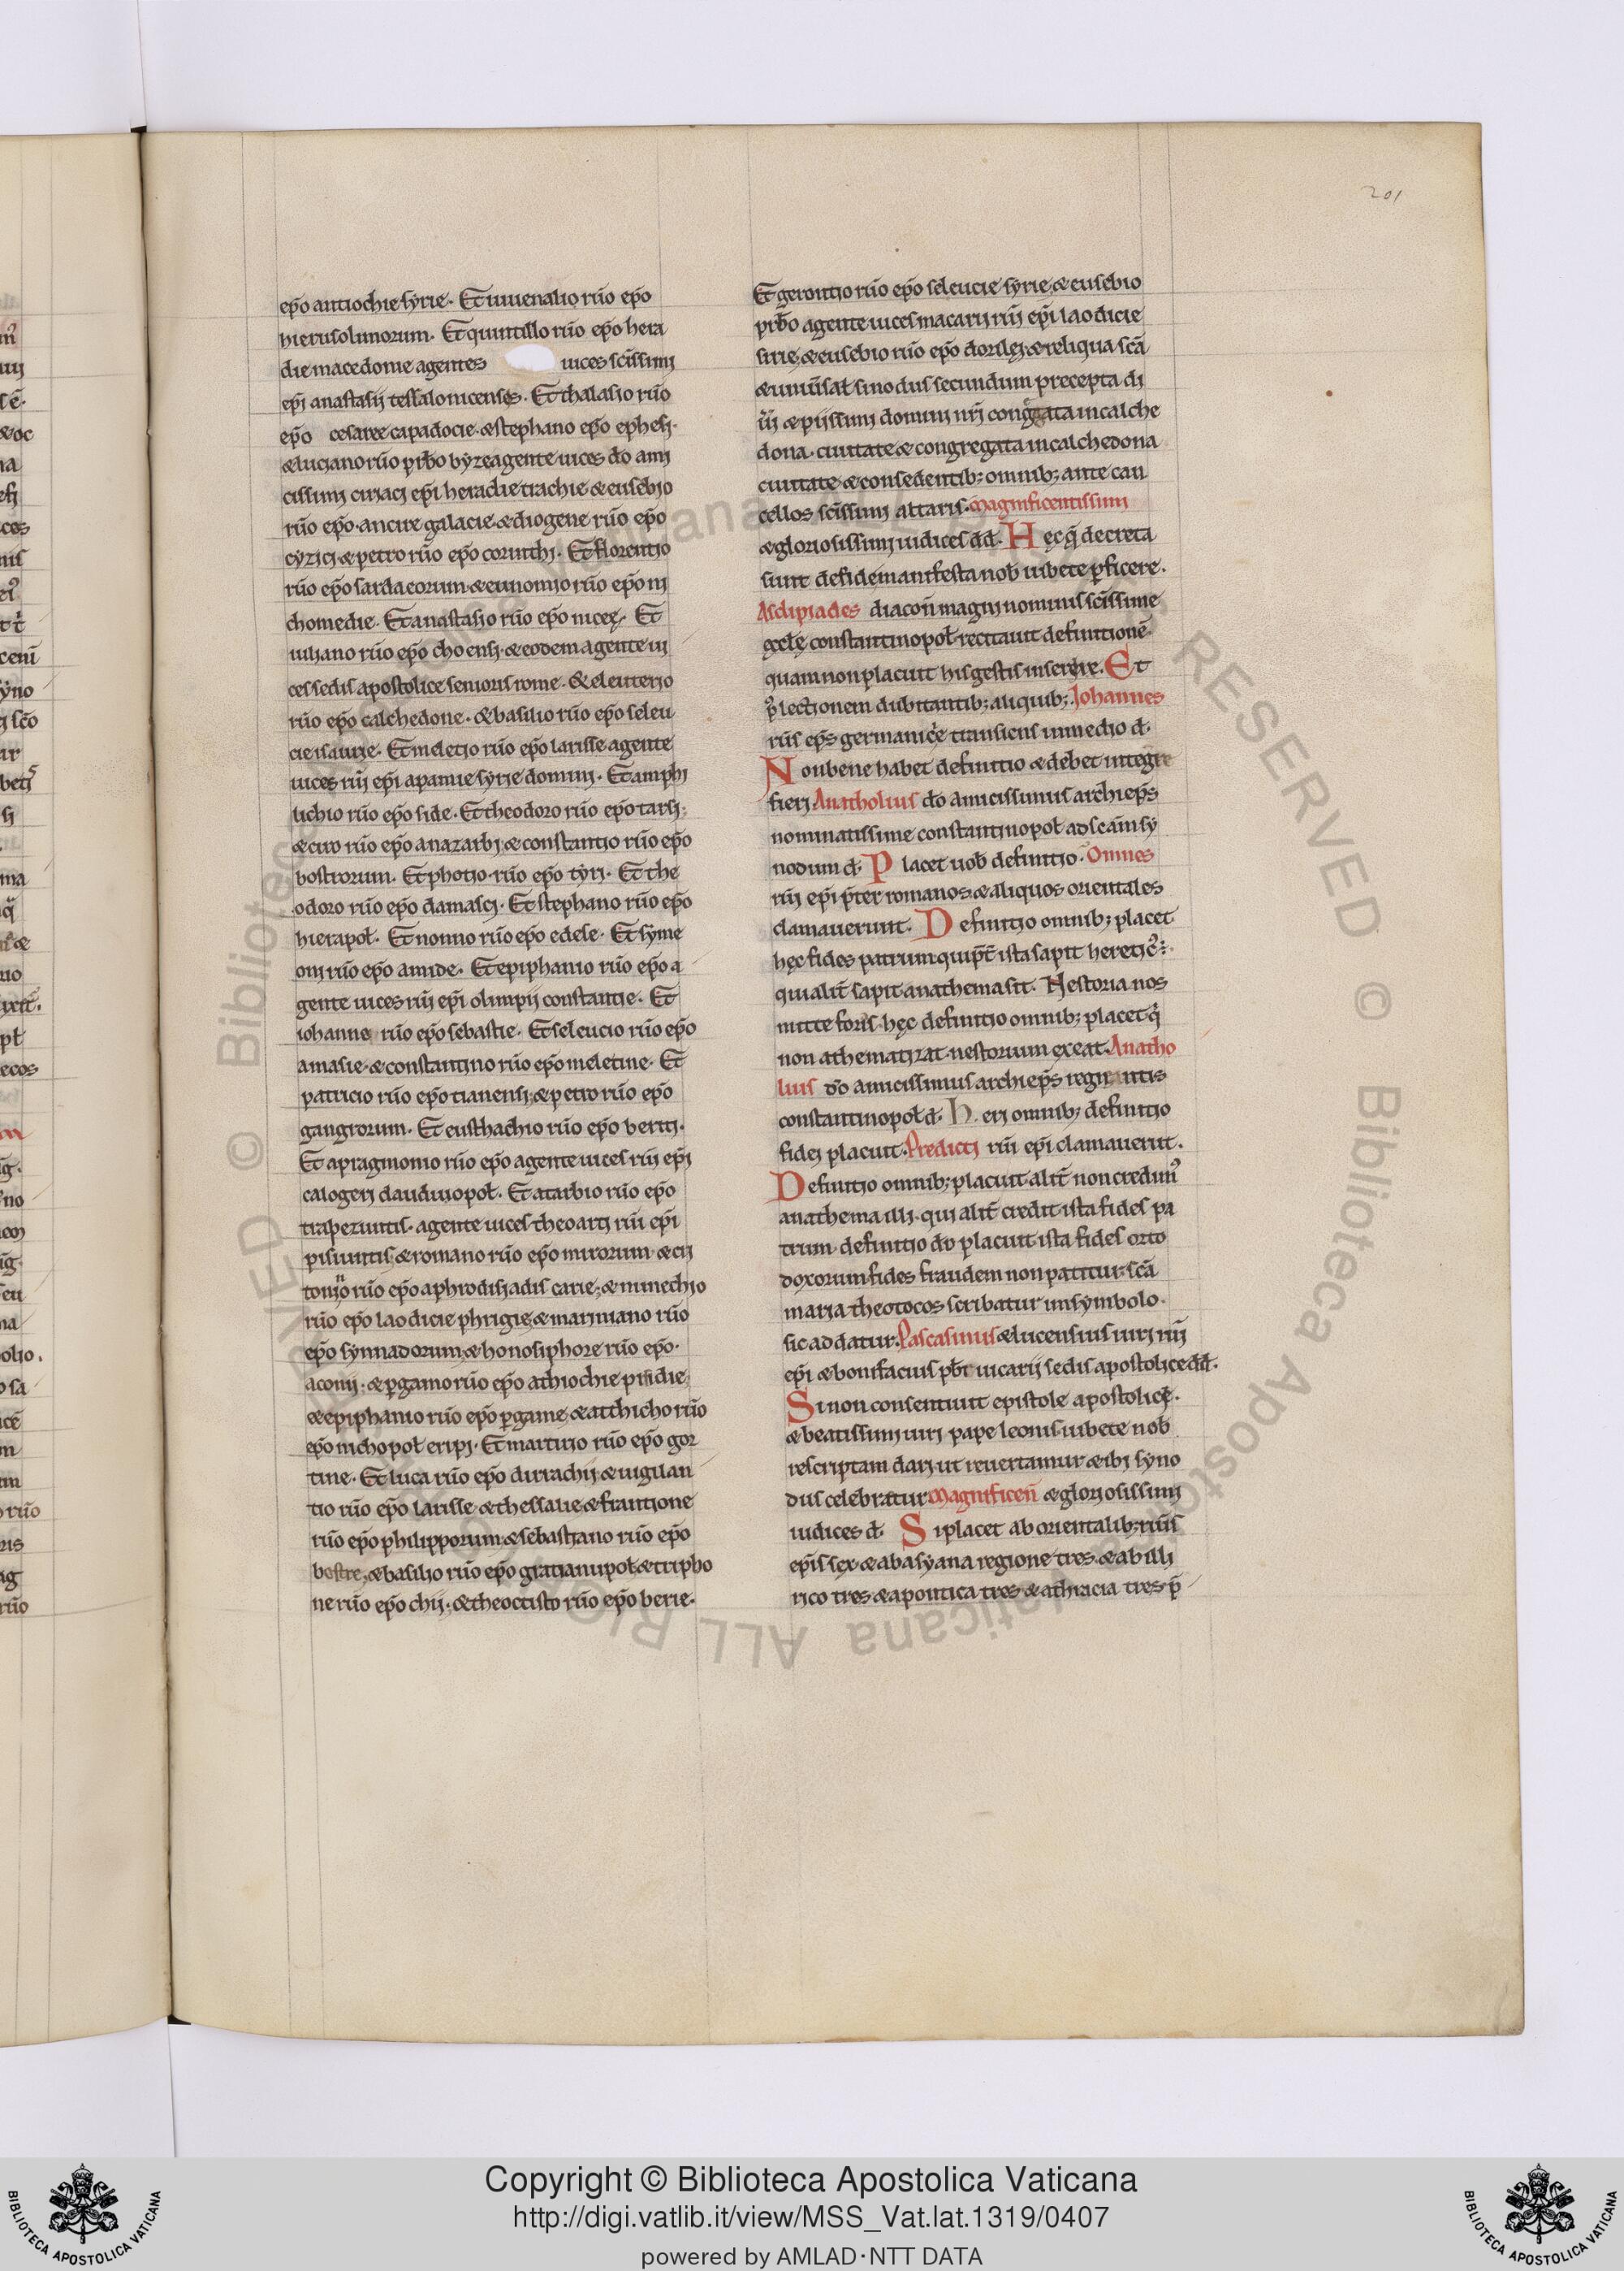 201
ep̄o antiochie syrie. Et iuuenalio rūo ep̄o
hierusolimorum. Et quintillo rūo ep̄o hera
clie macedonie agentes uices sc̄issimi
ep̄i anastasij tessalonicenses. Et thalasio rūo
ep̄o cesaree capadocie. & stephano ep̄o ephesi.
& luciano rūo prb̄o byze agente uices d̄o ami
cissimi ciriaci ep̄i heraclie trachie & eusebio
rūo ep̄o. ancire galacie. & diogene rūo ep̄o
cyzici & petro rūo ep̄o corinthi. Et florentio
rūo ep̄o sardacorum. & eunomio rūo ep̄o ni
chomedie. Et anastasio rūo ep̄o niceę. Et
iuliano rūo ep̄o choensi. & eodem agente ui
ces sedis apostolice senioris rome. & eleuterio
rūo ep̄o calchedone. & basilio rūo ep̄o seleu
cie isaurie. Et meletio rūo ep̄o larisse agente
uices rūi ep̄i apamie syrie domini. Et amphi
lichio rūo ep̄o side. Et theodoro rūo ep̄o tarsi.
& ciro rūo ep̄o anazarbi & constantio rūo ep̄o
bostrorum. Et photio rūo ep̄o tyri. Et the
odoro rūo ep̄o damasci. Et stephano rūo ep̄o
hierapoł. Et nonno rūo ep̄o edese. Et syme
oni rūo ep̄o amide. Et epiphanio rūo ep̄o a
gente uices rūi ep̄i olimpij constantie. Et
iohanne rūo ep̄o sebastie. Et seleucio rūo ep̄o
amasie. & constantino rūo ep̄o meletine. Et
patricio rūo ep̄o tianensi. & petro rūo ep̄o
gangrorum. Et eusthachio rūo ep̄o beriti.
Et apragmonio rūo ep̄o agente uices rūi ep̄i
calogeri claudiuopoł. Et atarbio rūo ep̄o
trapezuntis. agente uices theoarti rūi ep̄i
pisiuntis. & romano rūo ep̄o mirorum. & cri
tonio rūo ep̄o aphrodisiadis carie. & nunechio
rūo ep̄o laodicie phrigie. & mariniano rūo
ep̄o synnadorum. & honosiphore rūo ep̄o.
aconij. & pgamo rūo ep̄o athiochie pisidie.
& epiphanio rūo ep̄o pgame. & atthicho rūo
ep̄o nichopoł eripi. Et martirio rūo ep̄o gor
tine. Et luca rūo ep̄o dirrachij & uigilan
tio rūo ep̄o larisse & thessalie & frantione
rūo ep̄o philipporum. & sebastiano rūo ep̄o
bostre. & basilio rūo ep̄o gratianipoł. & tripho
ne rūo ep̄o chij. & theoctisto rūo ep̄o berie.
Et gerontio rūo ep̄o seleucie syrie. & eusebio
prb̄o agente uices macarij rūi ep̄i laodicie
sirie. & eusebio rūo ep̄o dorilei. & reliqua sc̄a
& uniūsał sinodus secundum precepta di
& piissimi domini nr̄i congregata in calche
dona. ciuitate & congregata in calchedona
ciuitate & consedentib; omnib; ante can
cellos sc̄issimi altaris. Magnificentissimi
& gloriosissimi iudices dd̄. Hęc q̄ decreta
sunt de fide manifesta nob̄ iubete pficere.
Asclipiades diacoñ magni nominis sc̄issime
ęcclę constantinopoł recitauit definitionē.
quam non placuit his gestis inserere. Et
p lectionem dubitantib; aliquib; Iohannes
rūs ep̄s germanicę transiens in medio d̄.
Non bene habet definitio & debet integre
fieri Anatholius d̄o amicissimus archiep̄s
nominatissime constantinopoł ad scām sy
nodum d̄. Placet uob̄ definitio. Omnes
rūi ep̄i pter romanos & aliquos orientales
clamauerunt. Definitio omnib; placet
hęc fides patrum qui pt̄ ista sapit hereticꝰ ÷
qui alit̄ sapit anathema sit. Nestoria nos
mitte foris hęc definitio omnib; placet q̄
non athematizat nestorium exeat. Anatho
lius d̄o amicissimus archiep̄s regnantis
constantinopoł d̄. Heri omnib; definitio
fidei placuit. Predicti rūi ep̄i clamauerūt.
Definitio omnib; placuit alit̄ non credimꝰ
anathema illi. qui alit̄ credit ista fides pa
trum. definitio d̄o placuit ista fides orto
doxorum fides fraudem non patitur. scā
maria theotocos scribatur in symbolo.
sic addatur. Pascasinus & lucensius uiri rūi
ep̄i & bonifacius pb̄r uicarij sedis apostolice dd̄.
Si non consentiunt epistole apostolicę.
& beatissimi uiri pape leonis. iubete nob̄
rescriptam dari ut reuertamur & ibi syno
dus celebratur Magnificeñ & gloriosissimi
iudices d̄. Si placet ab orientalib; rūis
ep̄is sex & ab asyana regione tres & ab illi
rico tres & a pontica tres & a thracia tres p̄
Copyright © Biblioteca Apostolica Vaticana
http://digi.vatlib.it/view/MSS_Vat.lat.1319/0407
powered by AMLAD·NTT DATA
BIBLIOTECA APOSTOLICA VATICANA
BIBLIOTECA APOSTOLICA VATICANA